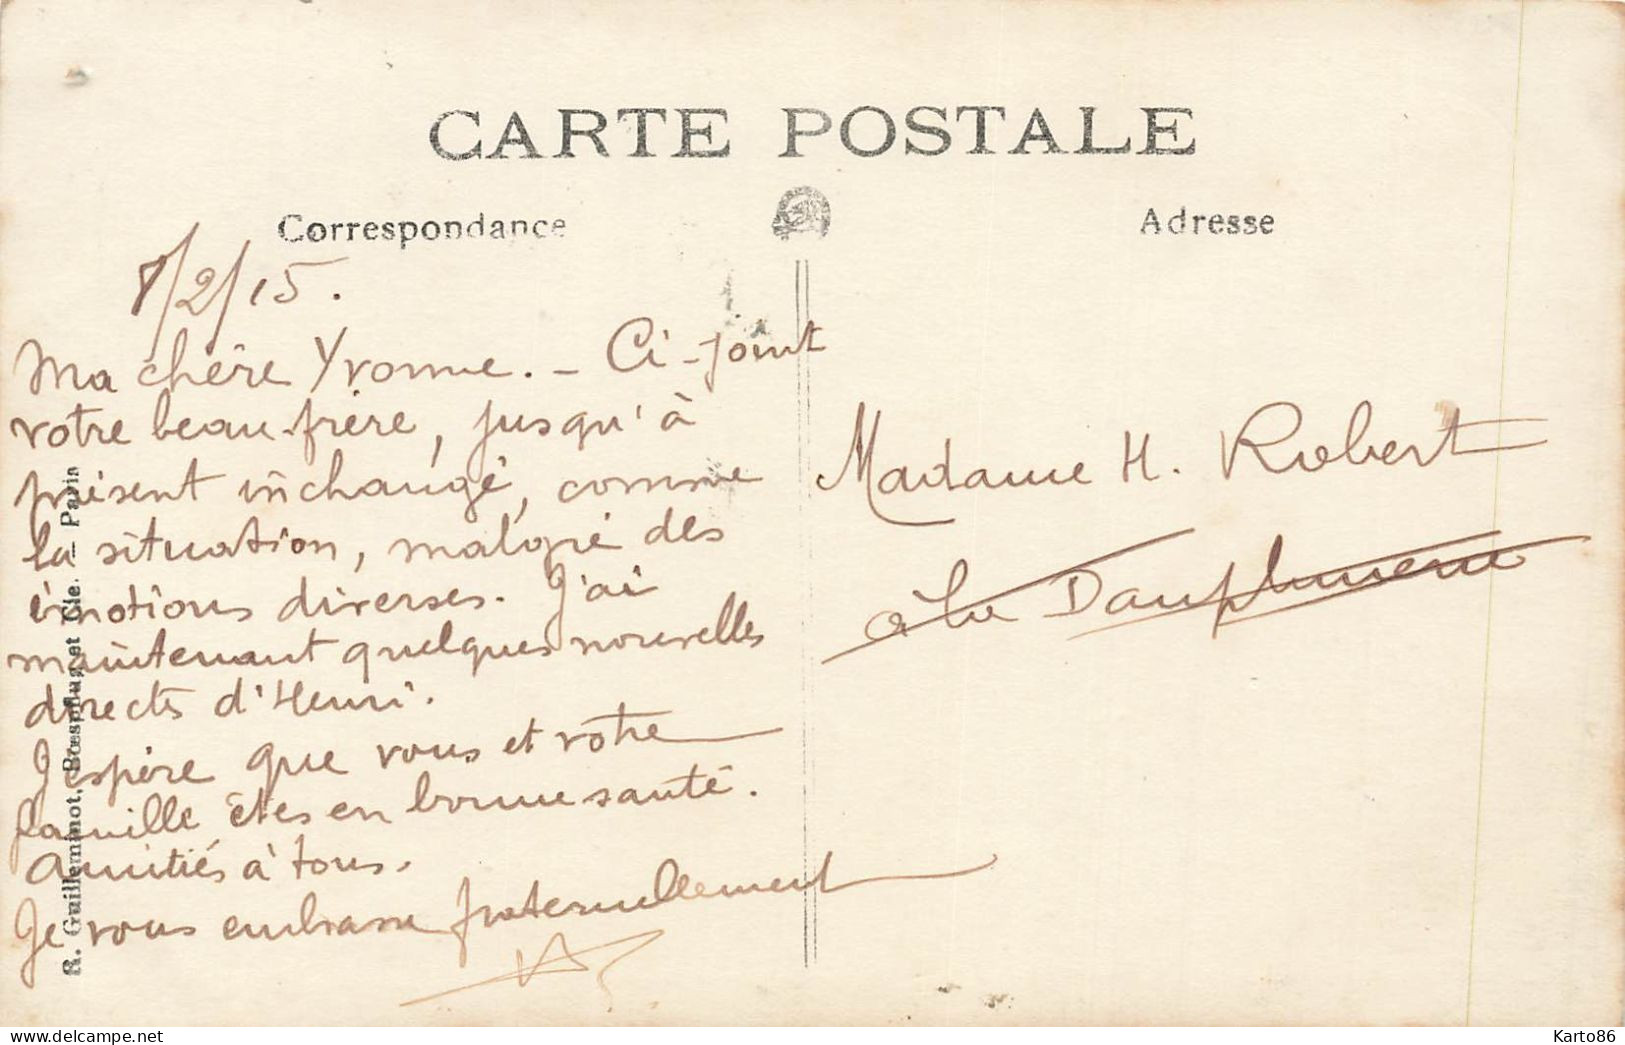 CARTE POSTALE
Correspondance
Adresse
8/2/15.
Ma chère Yvonne. - Ci-joint
votre beau-frère, jusqu'à
présent inchangé, comme
la situation, malgré des
émotions diverses. J'ai
maintenant quelques nouvelles
directes d'Henri.
J'espère que vous et votre
famille êtes en bonne santé.
Amitiés à tous.
Je vous embrasse fraternellement
Madame H. Robert
à la Dauphinerie
R. Guilleminot, Bœspflug et Cie. - Paris
Delcampe.net
Karto86